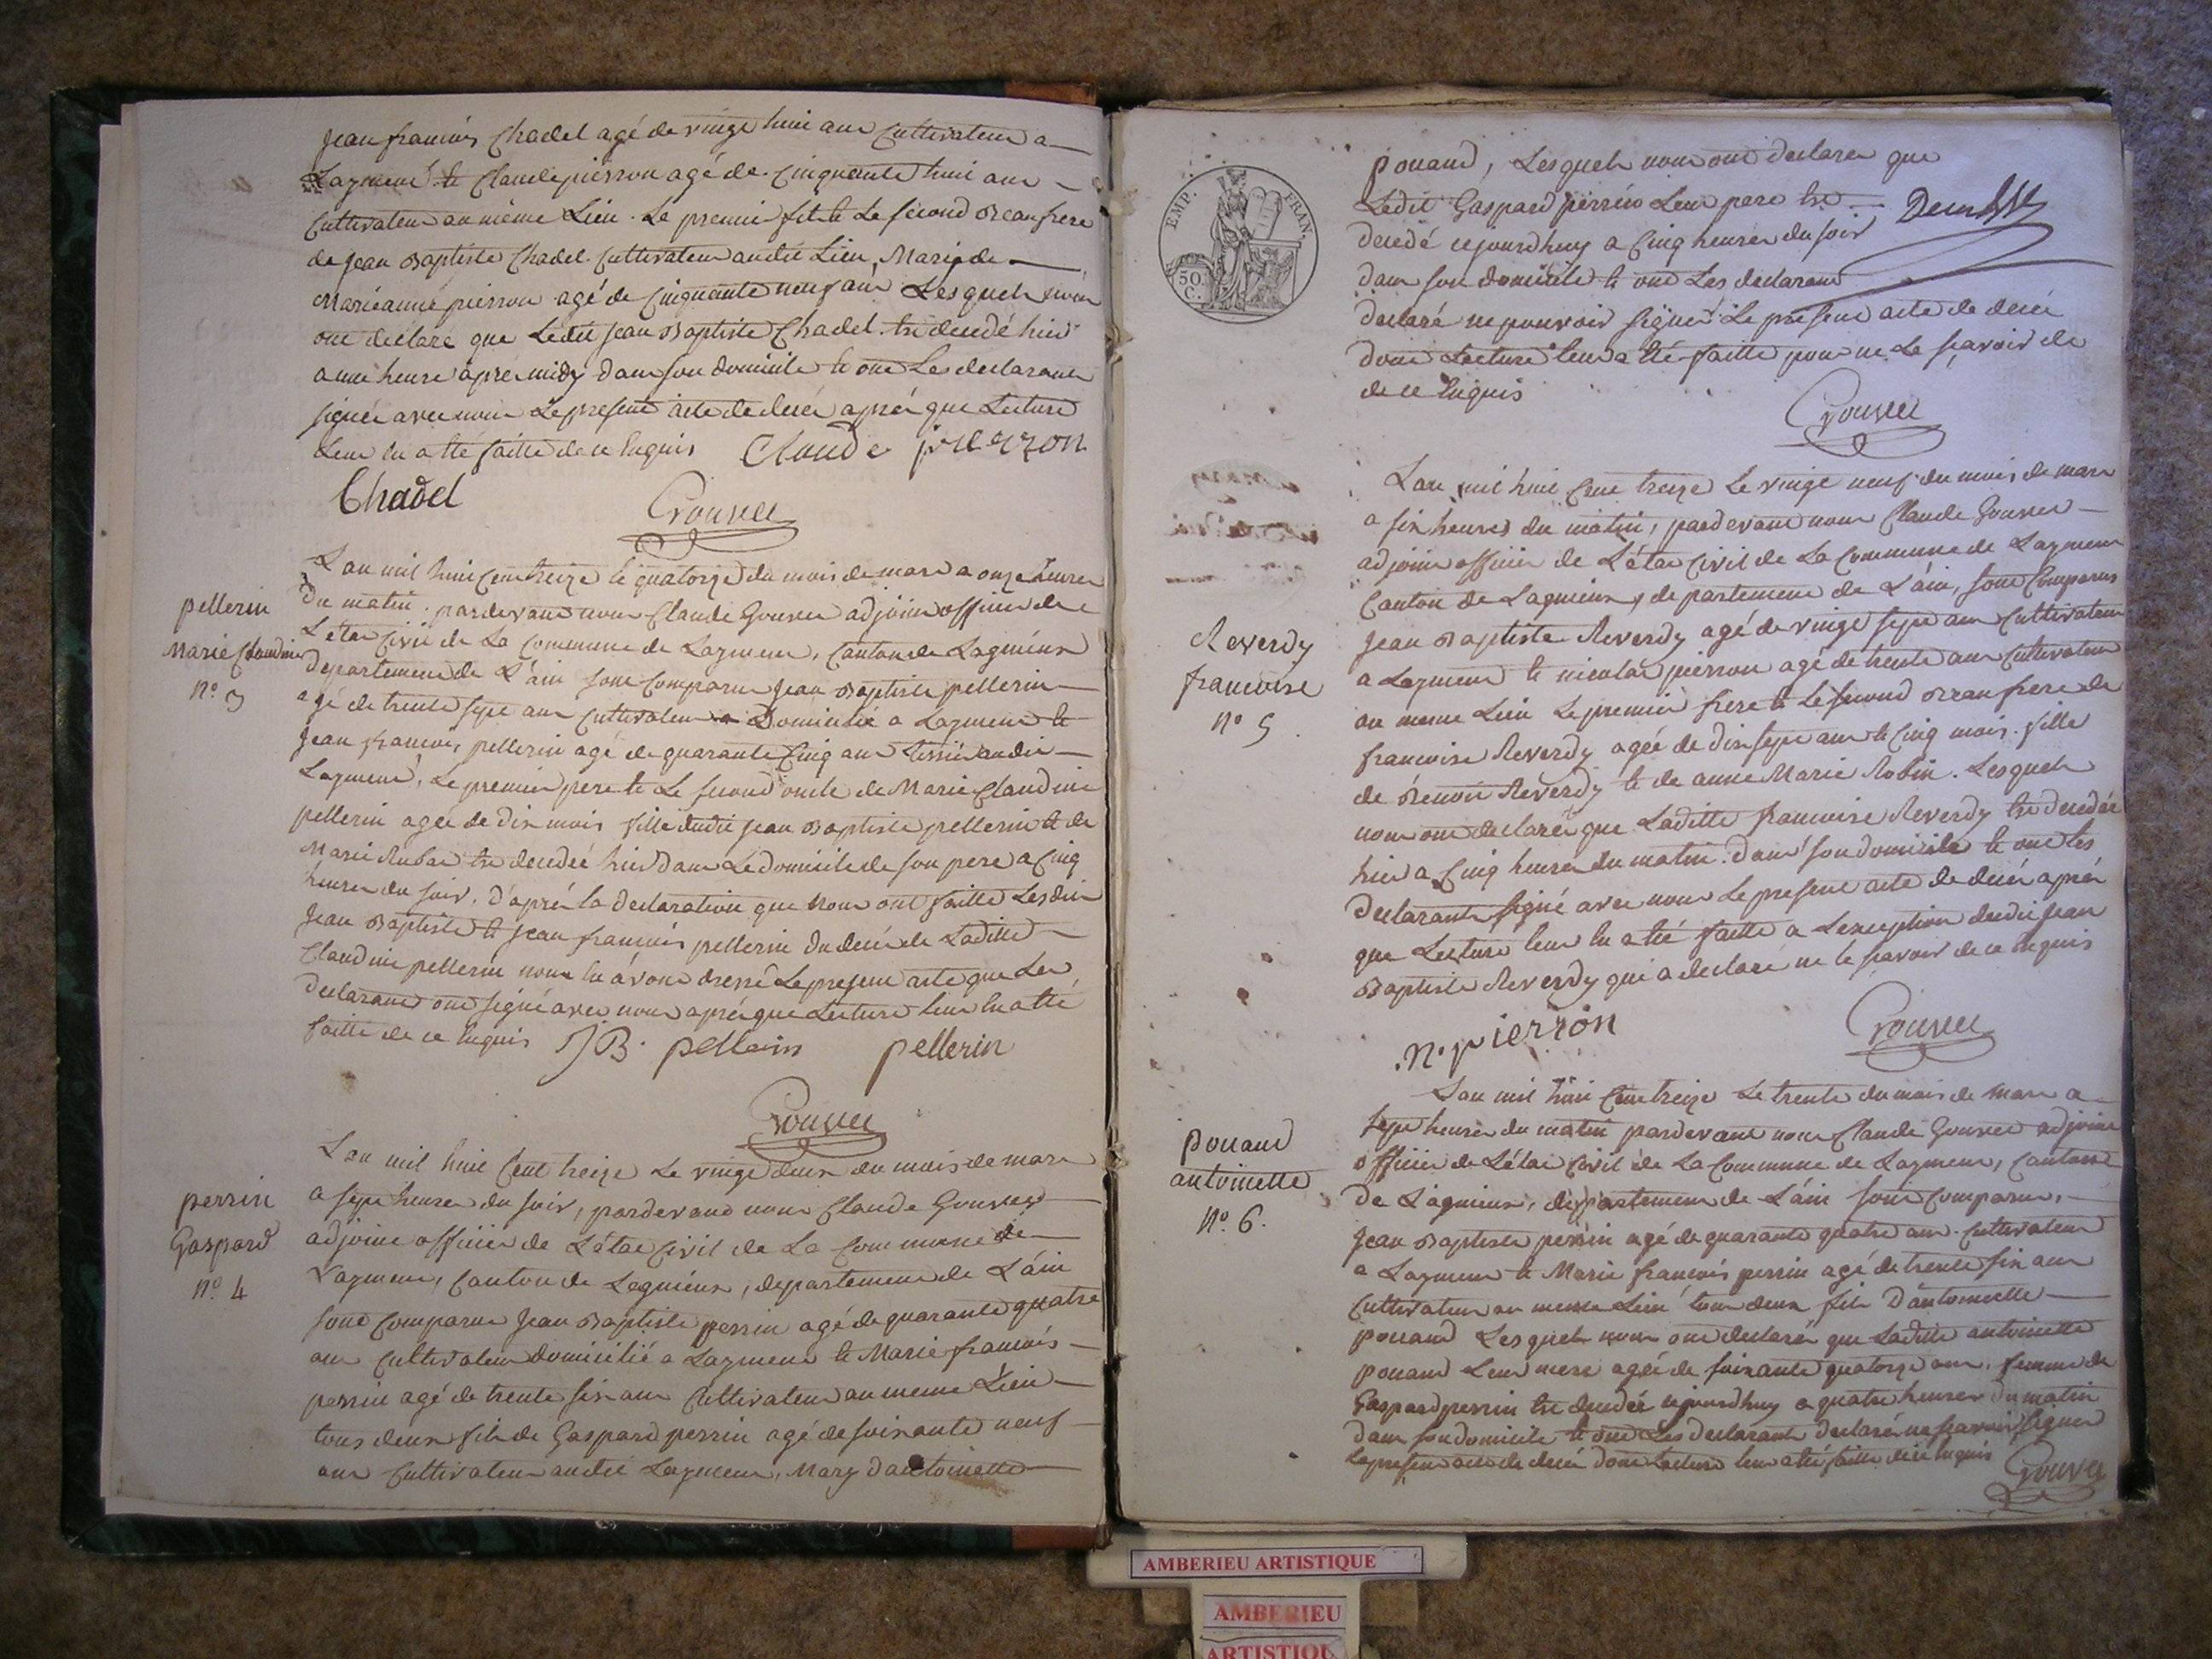 Jean francois Chadel agé de vingt huit ans Cultivateur a
Lagneux et Claude pierron agé de Cinquante huit ans
Cultivateur au même Lieu. Le premier fils et Le second Beaufrere
de Jean Baptiste Chadel Cultivateur audit Lieu, Marie de
Marieanne pierron agé de Cinquante neuf ans, Lesquels nous
ont déclaré que Ledit Jean Baptiste Chadel est decedé hier
a une heure après midy dans son domicile et ont Les declarants
signés avec nous Le present acte de decès après que Lecture
Leur en a été faitte de ce Enquis Claude pierron
Chadel
Gouvet
L'an mil huit Cent treize le quatorze du mois de mars a onze heures
pellerin
Marie Claudine
nº. 3
Du matin. pardevant nous Claude Gouvet adjoint officier de
L'état Civil de La Commune de Laymens, Canton de Lagnieux
departement de L'ain sont Comparus Jean Baptiste pellerin
agé de trente sept ans Cultivateur Domicilié a Laymens et
Jean francois pellerin agé de quarante Cinq ans tissier audit
Laymens, Le premier pere et Le second oncle de Marie Claudine
pellerin agée de dix mois fille dudit Jean Baptiste pellerin et de
Marie est decedée hier dans Le domicile de son pere a Cinq
heures du soir, d'après la declaration que Nous ont faitte Lesdits
Jean Baptiste et Jean francois pellerin du decès de Laditte
Claudine pellerin nous en avons dressé Le present acte que Les
declarants ont signé avec nous après que Lecture leur en a été
faitte de ce Enquis JB. pellerin pellerin
Gouvet
perrin
Gaspard
nº. 4
L'an mil huit Cent treize Le vingt deux du mois de mars
a sept heures du soir, pardevant nous Claude Gouvet
adjoint officier de L'état Civil de La Commune de
Laymens, Canton de Lagnieux, departement de L'ain
sont Comparus Jean Baptiste perrin agé de quarante quatre
ans Cultivateur domicilié a Laymens et Marie francois
perrin agé de trente six ans Cultivateur au meme Lieu
tous deux fils de Gaspard perrin agé de soixante neuf
ans Cultivateur audit Laymens, Mary d'antoinette
EMP. FRAN.
50 C.
pouand, Lesquels nous ont declarer que
Ledit Gaspard perrin Leur pere est
decedé cejourdhuy a Cinq heures du soir
dans son domicile et ont Les declarants
declaré ne pouvoir signer Le present acte de decès
dont Lecture leur a été faitte pour ne Le sçavoir de
de ce Enquis
Gouvet
Reverdy
francoise
nº 5
L'an mil huit Cent treize Le vingt neuf du mois de mars
a six heures du matin, pardevant nous Claude Gouvet
adjoint officier de L'état Civil de La Commune de Laymens
Canton de Lagnieux, departement de L'ain, sont Comparus
Jean Baptiste Reverdy agé de vingt sept ans Cultivateur
a Laymens et nicolas pierron agé de trente ans Cultivateur
au meme Lieu Le premier frere et Le second Beaufrere de
francoise Reverdy agée de dix sept ans et Cinq mois. fille
de Benoit Reverdy et de anne Marie Robin. Lesquels
nous ont declarés que Laditte francoise Reverdy est decedée
hier a Cinq heures du matin dans son domicile et ont Les
declarants signé avec nous Le present acte de decès après
que Lecture leur en a été faitte a L'exception dudit Jean
Baptiste Reverdy qui a declaré ne le sçavoir de ce Enquis
N. pierron
Gouvet
pouand
antoinette
Nº. 6.
L'an mil huit Cent treize Le trente du mois de mars a
sept heures du matin pardevant nous Claude Gouvet adjoint
officier de L'état Civil de La Commune de Laymens, Canton
De Lagnieux, departement de L'ain sont Comparus,
Jean Baptiste perrin agé de quarante quatre ans Cultivateur
a Laymens et Marie francois perrin agé de trente six ans
Cultivateur au meme Lieu tous deux fils D'antoinette
pouand Lesquels nous ont declarés que Laditte antoinette
pouand Leur mere agée de soixante quatorze ans, femme de
Gaspard perrin est decedée cejourdhuy a quatre heures du matin
dans son domicile et ont Les declarants declaré ne sçavoir signer
Le present acte de decès dont Lecture leur a été faitte de ce Enquis
Gouvet
AMBERIEU ARTISTIQUE
AMBERIEU
ARTISTIQU